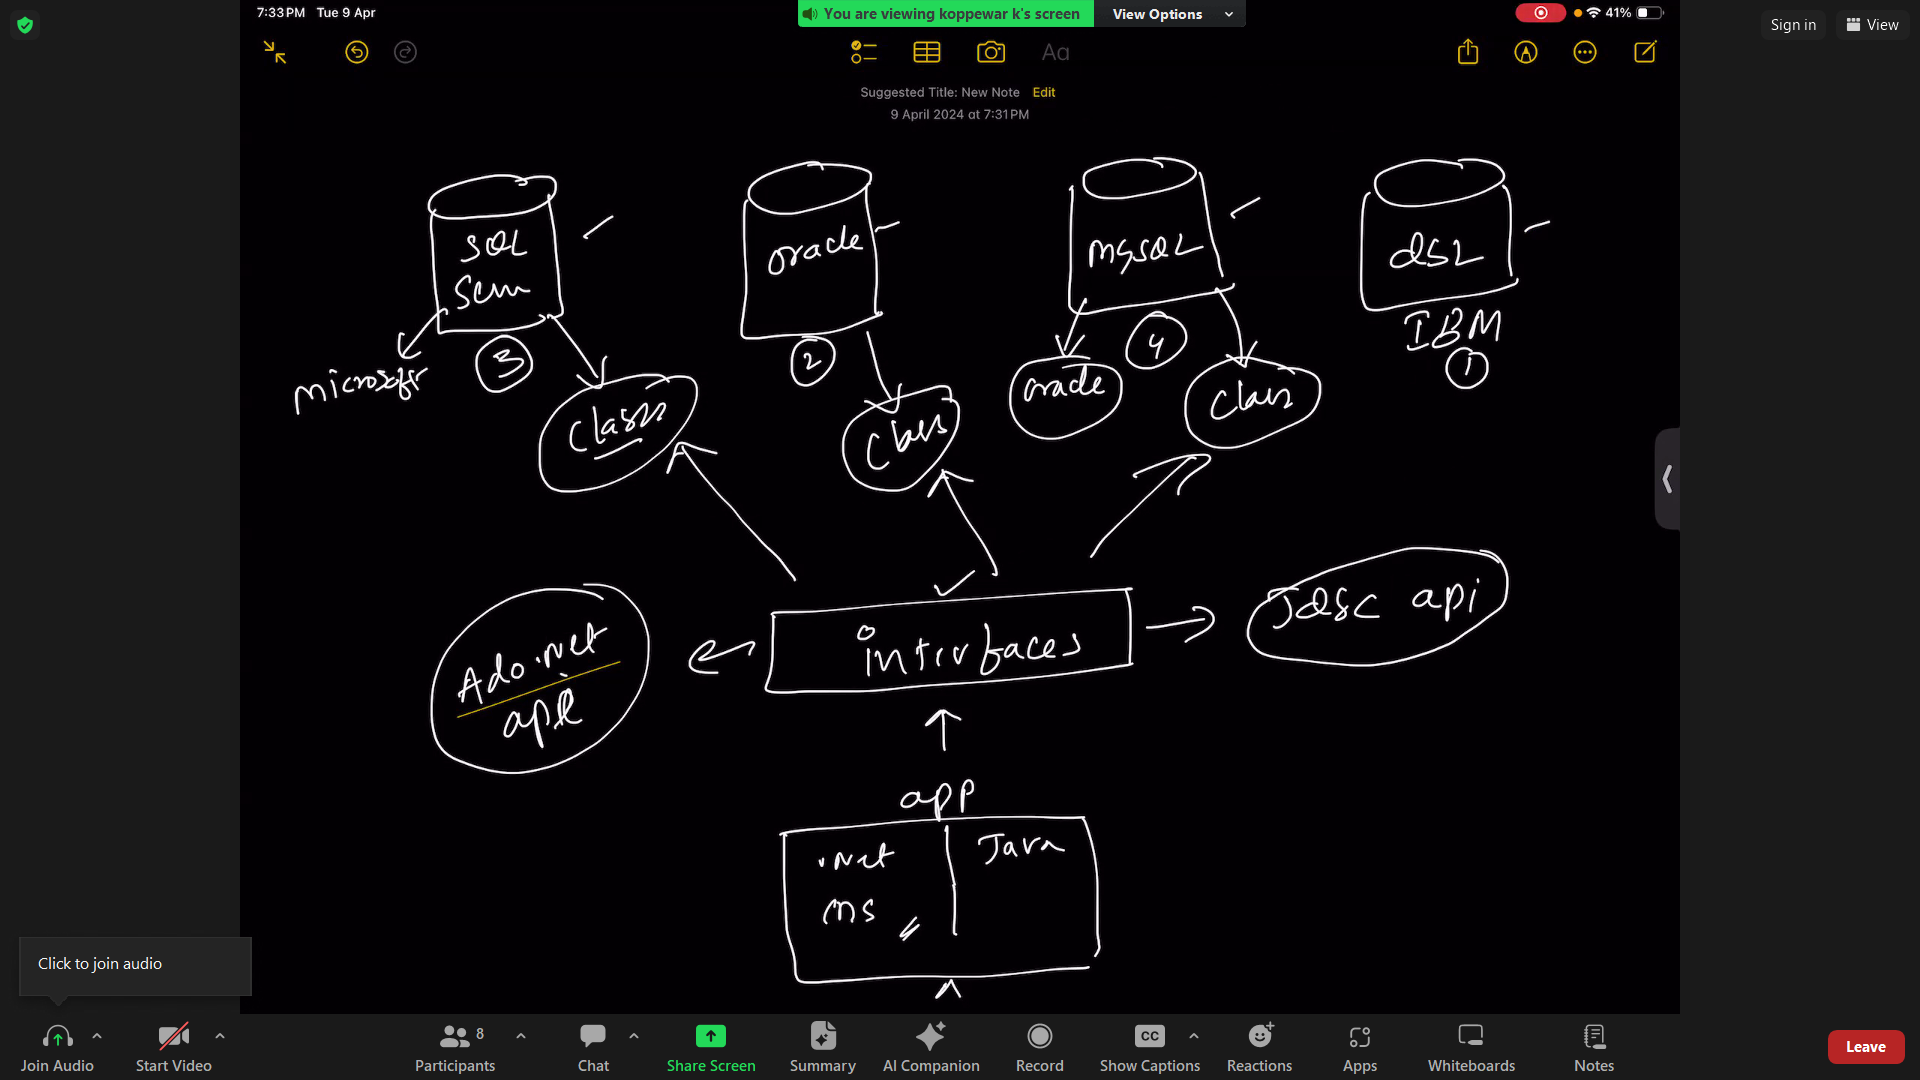 7:33 PM Tue 9 Apr
You are viewing koppewar k's screen
View Options
41%
Sign in
View
Aa
Suggested Title: New Note Edit
9 April 2024 at 7:31 PM
SQL
oracle
mySQL
IBM
3
2
4
1
microsoft
oracle
Class
Class
Class
interfaces
Ado.net
api
app
.Net
Java
ms
Click to join audio
Join Audio
Start Video
Participants
8
Chat
Share Screen
Summary
AI Companion
Record
CC
Show Captions
Reactions
Apps
Whiteboards
Notes
Leave